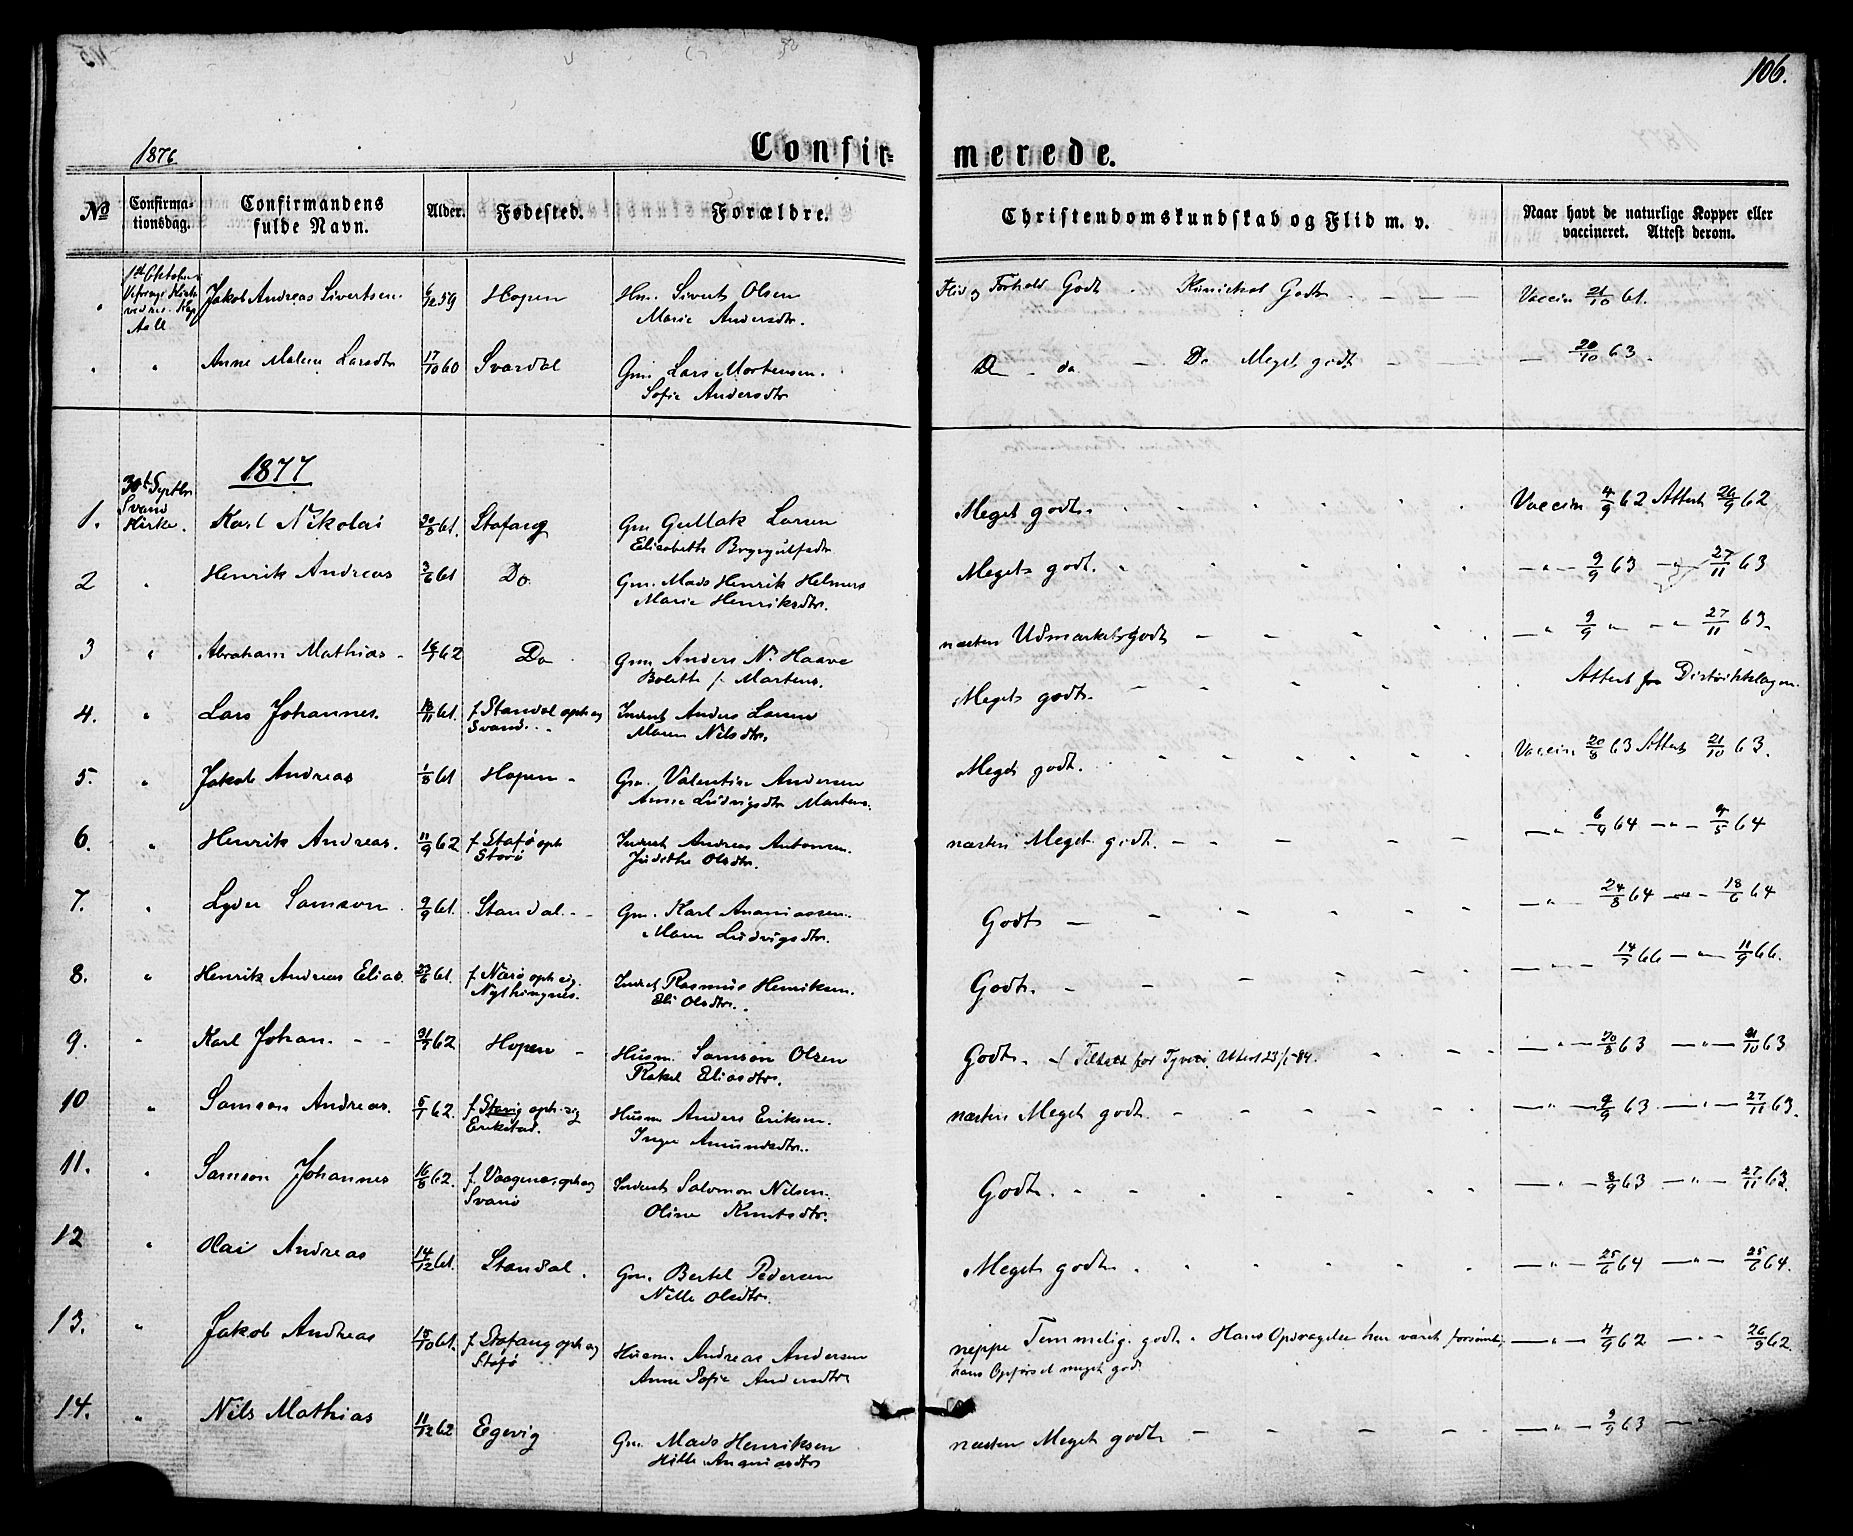 106.
1876
Confir=merede.
№ Confirma-tionsdag. Confirmandens fulde Navn. Alder. Fødested. Forældre. Christendomskundskab og Flid m. v. Naar havt de naturlige Kopper eller vaccineret. Attest derom.
" Jakob Andreas Sivertsen. 6/12 59 Hopen Hm. Sivert Olsen Flid og Forhold Godt - Kundskab Godt - Vaccin 21/10 61.
Marie Andersdtr.
" " Anne Malene Larsdtr 17/10 60 Svardal Gm. Lars Mortensen. Do - do - Do Meget godt - 20/10 63.
Sofie Andersdtr
1877
30te Septbr Svanø Kirke.
1. Karl Nikolai 20/8 61. Stafang Gm Gullak Larsen Meget godt. Vaccin 4/9 62 Attest 26/9 62
Elisabeth Brynjulfsdtr
2 " Henrik Andreas 3/6 61 Do. Gm. Mads Henrik Helmers Meget godt. - " - 9/9 63 - " - 27/11 63
Marie Henriksdtr.
3 " Abraham Mathias - 16/7 62 Do Gm Anders N. Haave næsten Udmærket godt - " 9/9 " - " - 27/11 63.
Bolette f. Martens.
4. " Lars Johannes. 13/11 61. f. Standal oph og Svanø. Inderst Anders Larsen Meget godt. Attest fra Distriktslægen.
Maren Nilsdtr.
5. " Jakob Andreas 1/8 61 Hopen - Gm. Valentin Andersen Meget godt. Vaccin 20/8 63 Attest 21/10 63.
Anne Ludvigsdtr Martens.
6. " Henrik Andreas. 11/9 62 f. Stafø oph Storø Inderst Andreas Antonsen. næsten Meget godt. - " - 6/9 64 - " - 9/5 64
Judithe Olsdtr.
7. " Lyder Samson 9/9 61. Standal. - Gm. Karl Ananiassen. Godt - " - 24/8 64 - " - 18/6 64
Maren Ludvigsdtr.
8. " Henrik Andreas Elias. 23/6 61. f. Nærø oph. og. Nythingnes. Inderst Rasmus Henriksen. Godt. - " - 14/7 66 - " - 11/9 66.
Eli Olsdtr.
9. " Karl Johan. - 31/7 62 Hopen - Husm. Samson Olsen Godt. - (Tiltalt for Tyveri. Attest 23/1-84. - " - 20/8 63 - " - 21/10 63
Rakel Eliasdtr.
10 " Samson Andreas. 5/1 62. f. Stavig oph. og Erikstad. Husm Anders Eriksen. næsten Meget godt. - " - 9/9 63 - " - 27/11 63.
Inger Amundsdtr.
11. " Samson Johannes 16/8 62. f. Vaagenes, oph og Svanø Inderst Salomon Nilsen. Godt. - " - 8/9 63 - " - 27/11 63.
Oline Knutsdtr.
12 " Olai Andreas 14/12 61. Standal. Gm. Bertel Pedersen Meget godt. - " - 25/6 64 - " - 25/6 64.
Nille Olsdtr.
13. " Jakob Andreas 15/10 61. f. Stafang oph og Stafø Husm. Andreas Andersen neppe Temmelig godt. Hans Opdragelse har været forsømt, - " - 4/9 62 - " - 26/9 62.
Anne Sofie Andersdtr hans Opførsel meget godt
14. " Nils Mathias 11/12 62 Egevig Gm. Mads Henriksen næsten Meget godt - " - 9/9 63 - " -
Hille Ananiasdtr